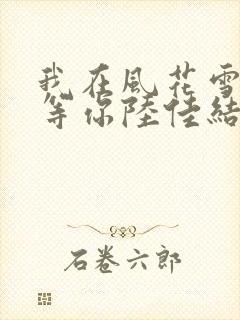 我在風花雪
等你陸佳結
石卷六郎